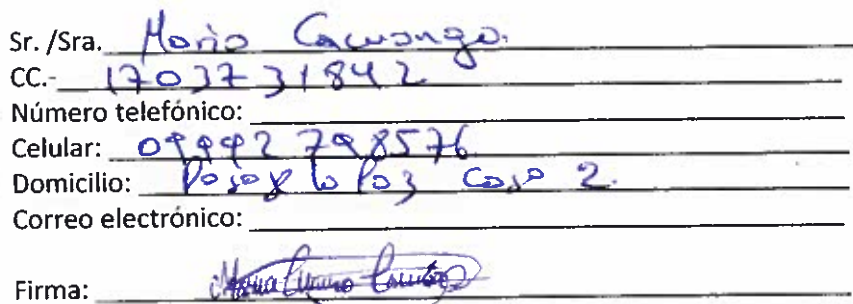 Sr. /Sra. Maria Cacuango.
CC.- 1703731842
Número telefónico:
Celular: 09992798576
Domicilio: la Paz Casa 2.
Correo electrónico:
Firma: